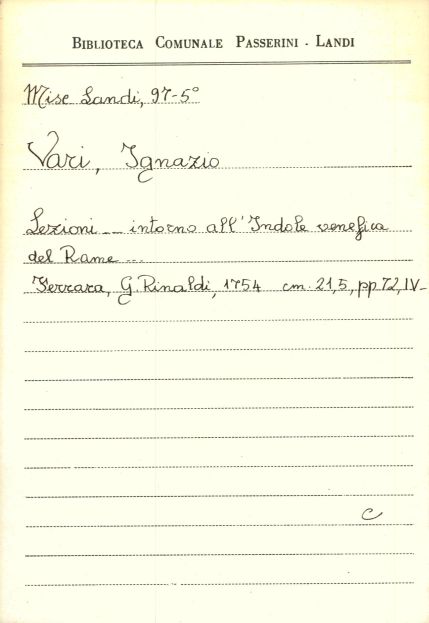 BIBLIOTECA COMUNALE PASSERINI - LANDI
Misc Landi, 97-5°
Vari, Ignazio
Lezioni ... intorno all'Indole venefica
del Rame ...
Ferrara, G. Rinaldi, 1754 cm. 21,5, pp 72, IV-
C